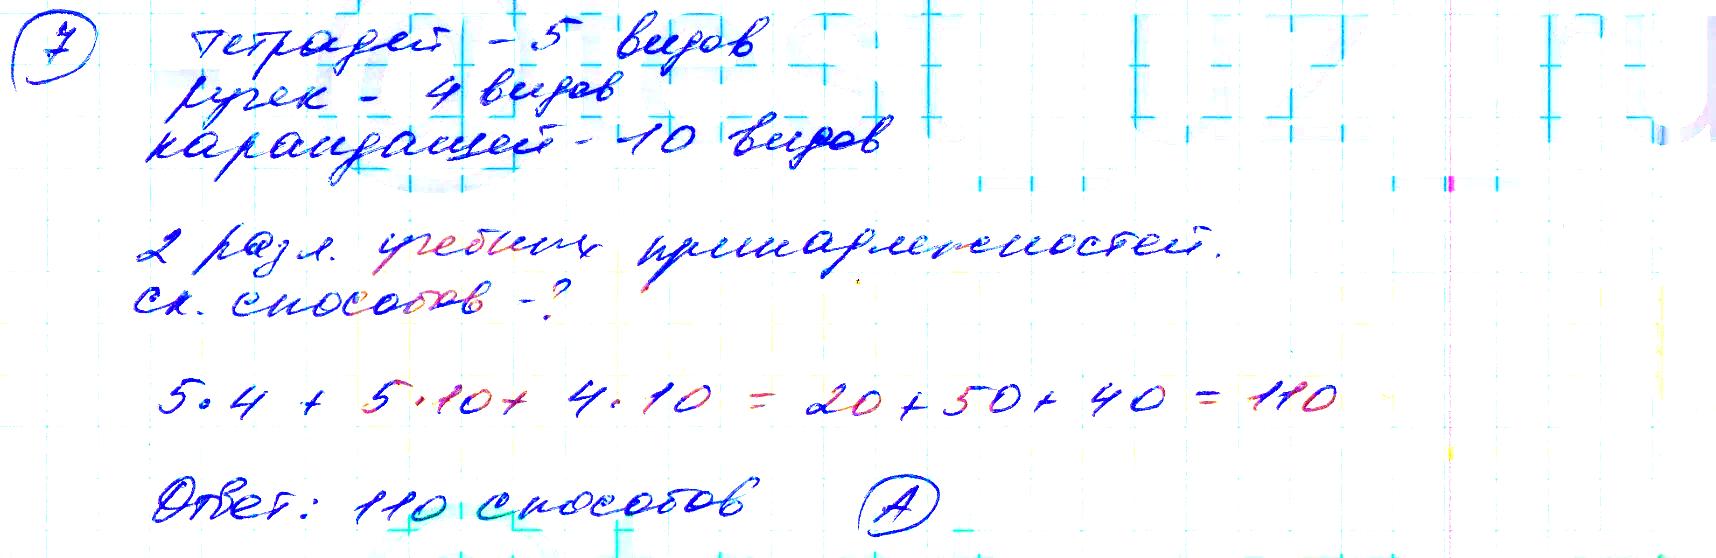 7 тетрадей - 5 видов
ручек - 4 видов
карандашей - 10 видов
2 разл. учебных принадлежностей.
ск. способов - ?
5·4 + 5·10 + 4·10 = 20 + 50 + 40 = 110
Ответ: 110 способов А